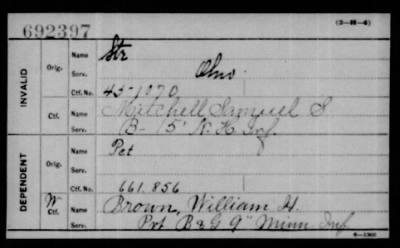 692397
(3-H-6)
INVALID
Orig.
Name Str
Serv. Ohio
Ctf. No. 45-1070
Ctf.
Name Mitchell Samuel S
Serv. B- 15" N. H. Inf
DEPENDENT
Orig.
Name Pet
Serv.
Ctf. No. 661.856
W Ctf.
Name Brown, William H.
Serv. Pvt B & G 9" Minn Inf